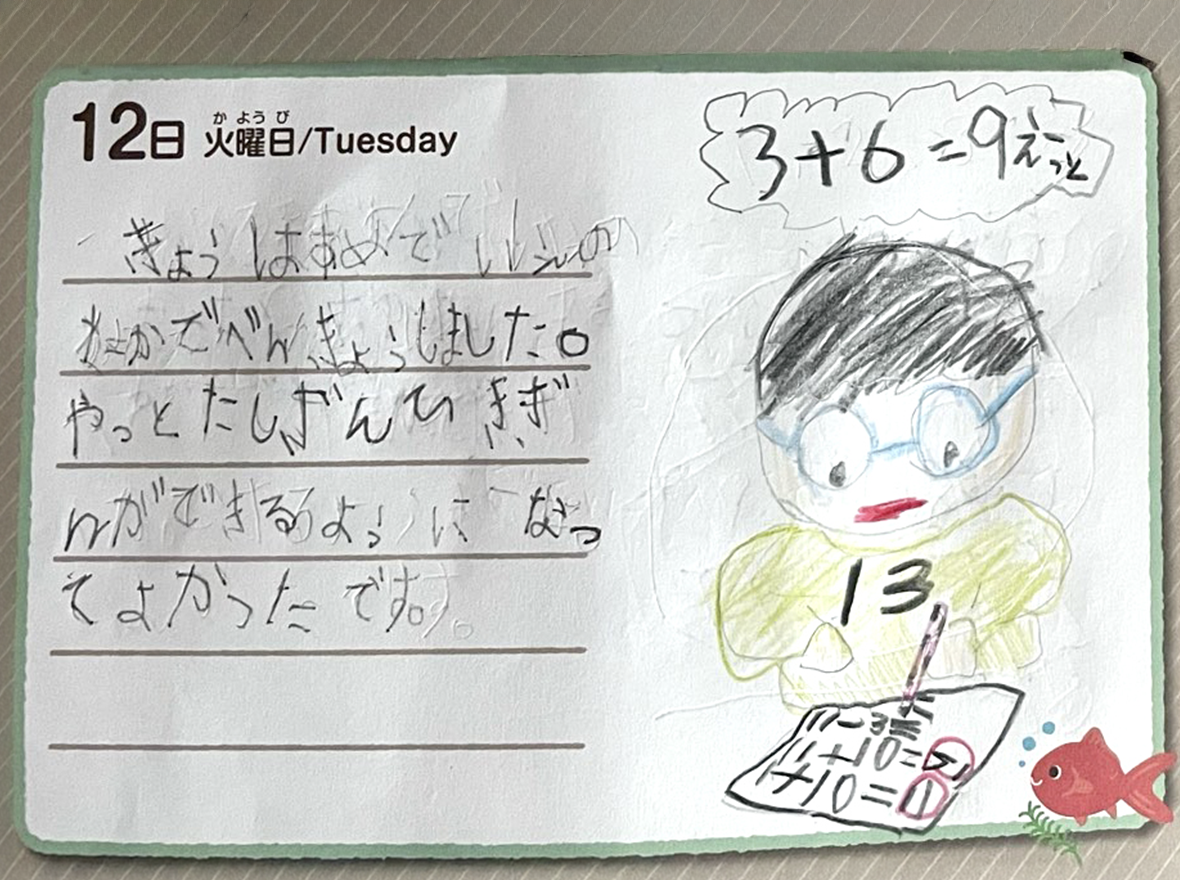 か よう び
12日 火曜日/Tuesday
きょうはあめで いえの
なかでべんきょうしました。
やっと たしざんひきざ
んができるように なっ
てよかった です。
3+6=9えーっと
13
11-3=
11+10=21
1+10=11